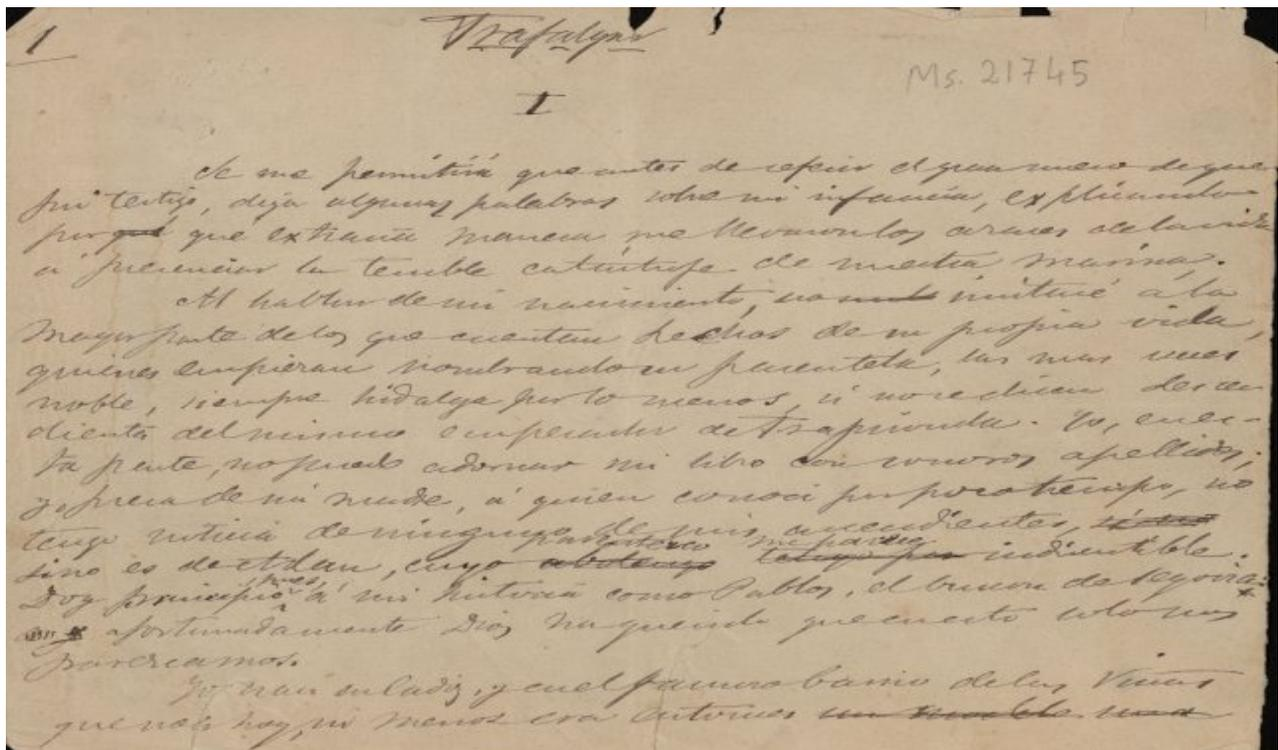 1
Trafalgar
Ms. 21745
I
Se me permitirá que antes de referir el gran suceso de que
fui testigo, diga algunas palabras sobre mi infancia, explicando
por que extraña manera me llevaron los azares de la vida
á presenciar la terrible catástrofe de nuestra marina.
Al hablar de mi nacimiento, no imitaré a la
mayor parte de los que cuentan hechos de su propia vida,
quienes empiezan nombrando su parentela, las mas veces
noble, siempre hidalga por lo menos, si no se dicen descen
dientes del mismo emperador de Trapisonda. Yo, en es-
ta parte, no puedo adornar mi libro con sonoros apellidos;
y fuera de mi madre, á quien conocí por poco tiempo, no
tengo noticia de ninguno de mis ascendientes,
parentesco me parece
sino es de Adan, cuyo abolengo tengo por indiscutible.
pues,
Doy principio á mi historia como Pablos, el buscon de Segovia:
afortunadamente Dios ha querido que en esto solo nos
parezcamos.
Yo nací en Cadiz, y en el famoso barrio de la Viña
que no es hoy, ni menos era entonces